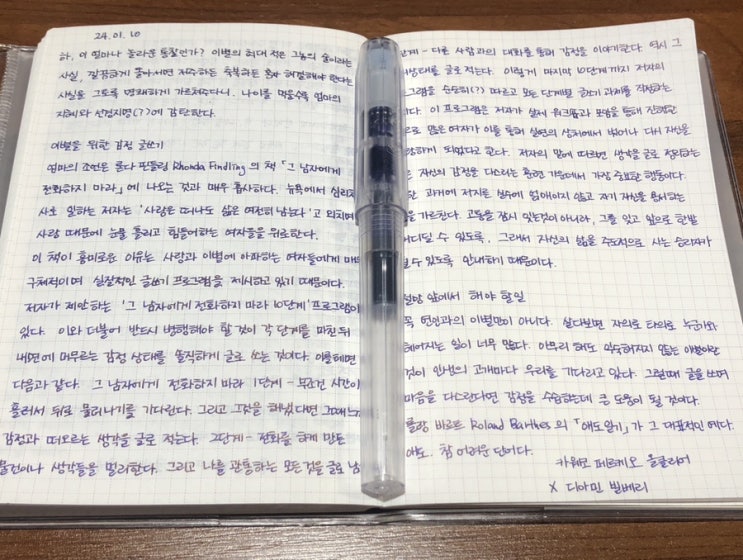 24.01.10
하, 이 얼마나 놀라운 통찰인가? 이별의 최대 적은 그놈의 술이라는
사실, 깔끔하게 돌아서면 저주하든 축복하든 혼자 해결해야 한다는
사실을 그토록 명쾌하게 가르쳐주다니. 나이를 먹을수록 엄마의
지혜와 선견지명(??)에 감탄한다.
이별을 위한 감정 글쓰기
엄마의 조언은 론다 핀들링 Rhonda Findling 의 책 「그 남자에게
전화하지 마라」에 나오는 것과 매우 흡사하다. 뉴욕에서 심리치
사로 일하는 저자는 '사람은 떠나도 삶은 여전히 남는다'고 외치며
사람 때문에 눈물 흘리고 힘들어하는 여자들을 위로한다.
이 책이 흥미로운 이유는 사랑과 이별에 아파하는 여자들에게 매우
구체적이며 실질적인 글쓰기 프로그램을 제시하고 있기 때문이다.
저자가 제안하는 '그 남자에게 전화하지 마라 10단계' 프로그램이
있다. 이와 더불어 반드시 병행해야 할 것이 각 단계를 마친 뒤
내면에 머무르는 감정 상태를 솔직하게 글로 쓰는 것이다. 이를테면
다음과 같다. 그 남자에게 전화하지 마라 1단계 - 무조건 시간이
흘러서 뒤로 물러나기를 기다린다. 그리고 그것을 해냈다면 그때 느
감정과 떠오르는 생각을 글로 적는다. 2단계 - 전화를 하게 만든
물건이나 생각들을 멀리한다. 그리고 나를 관통하는 모든 것을 글로 남
단계 - 다른 사람과의 대화를 통해 감정을 이야기한다. 역시 그
상태를 글로 적는다. 이렇게 마지막 10단계까지 저자의
그램을 순순히(??) 따르고 모든 단계별 쓰기 과제를 작성하는
다. 이 프로그램은 저자가 실제 워크숍과 모임을 통해 진행한
으로 많은 여자가 이를 통해 실연의 상처에서 벗어나 다시 자신을
랑하게 되었다고 한다. 저자의 말에 따르면 생각을 글로 정리하는
은 자신의 감정을 다스리는 훈련 가운데에서 가장 중요한 행동이다.
한 과거에 저지른 실수에 얽매이지 않고 자기 자신을 용서하는
을 가르친다. 고통을 잠시 잊는 것이 아니라, 그를 잊고 앞으로 한발
내디딜 수 있도록, 그래서 자신의 삶을 주도적으로 사는 승리자가
될 수 있도록 안내하기 때문이다.
절망 앞에서 해야 할 일
꼭 연인과의 이별만이 아니다. 살다보면 자의로 타의로 누군가와
헤어지는 일이 너무 많다. 아무리 해도 익숙해지지 않는 이별이란
것이 인생의 고개마다 우리를 기다리고 있다. 그럴 때 글을 쓰며
마음을 다스린다면 감정을 수습하는데 큰 도움이 될 것이다.
롤랑 바르트 Roland Barthes 의 「애도 일기」가 그 대표적인 예다.
애도. 참 어려운 단어다.
카웨코 페르케오 올드
X 디아민 빌베리